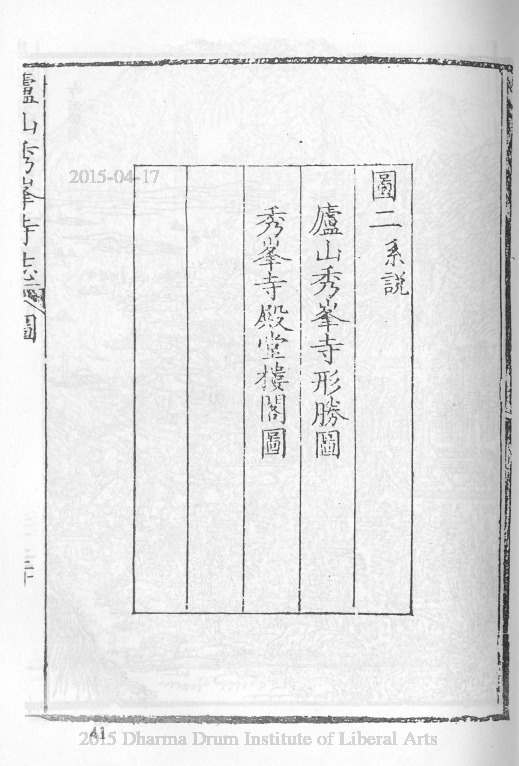 圖二 系說
廬山秀峯寺形勝圖
秀峯寺殿堂樓閣圖
廬山秀峯寺志 圖
二十
2015-04-17
41
2015 Dharma Drum Institute of Liberal Arts